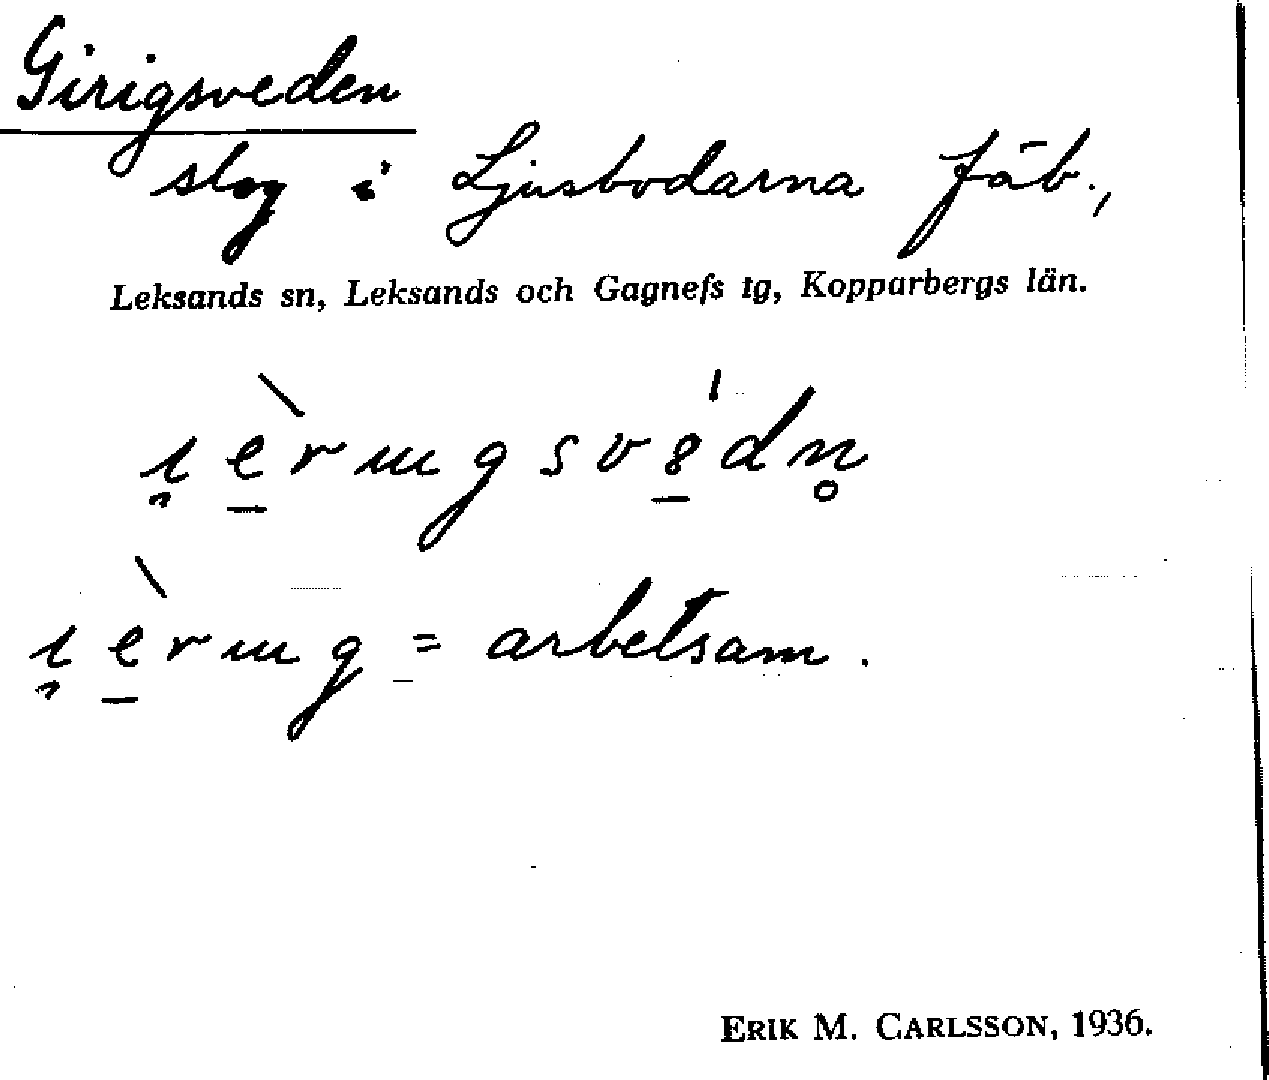 Girigsveden
slog i Ljusbodarna fäb.,
Leksands sn, Leksands och Gagnefs tg, Kopparbergs län.
= arbetsam.
ERIK M. CARLSSON, 1936.